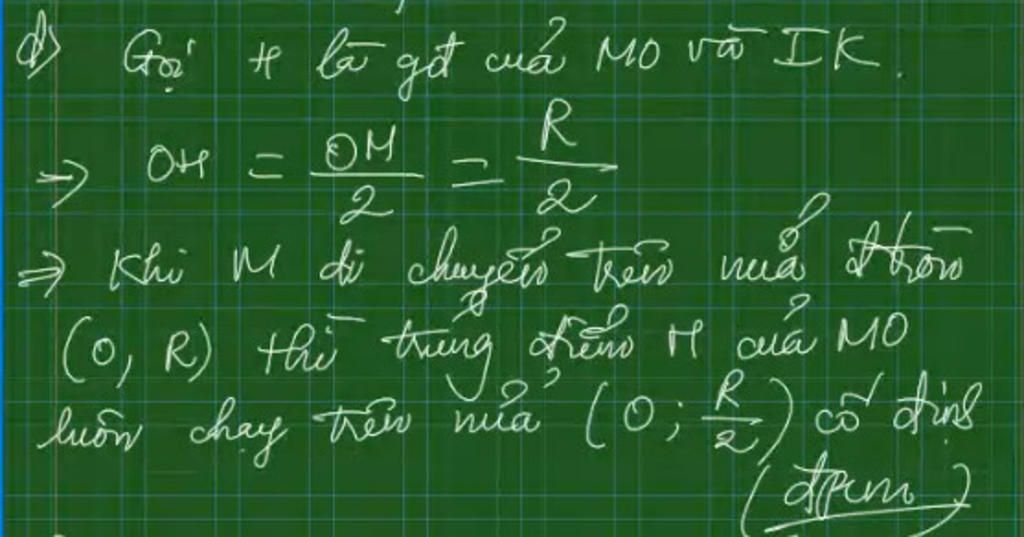 d) Gọi H là gđ của MO và IK.
⇒ OH = OM/2 = R/2
⇒ Khi M di chuyển trên nửa đtròn
(O, R) thì trung điểm H của MO
luôn chạy trên nửa (O; R/2) cố định
(đpcm)